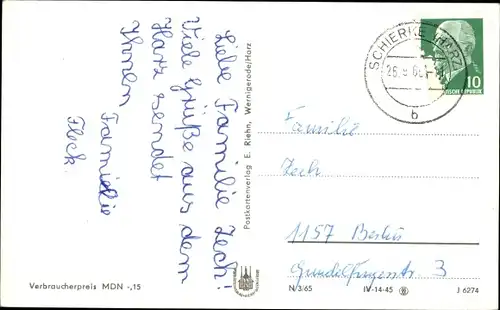 Liebe Familie Zech!
Viele Grüße aus dem
Harz sendet
Ihnen
Familie
Fleck.
Verbraucherpreis MDN -,15
Postkartenverlag E. Riehn, Wernigerode/Harz
SCHIERKE (HARZ)
b
10
Familie
Zech
1157 Berlin
3
N/3/65
IV-14-45
J 6274